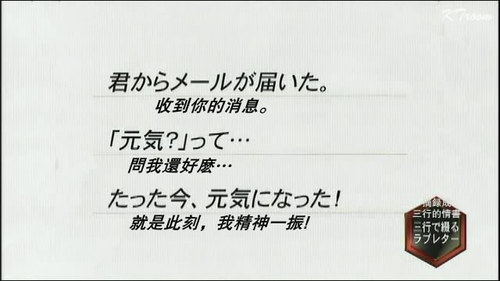 KTroom
君からメールが届いた。
收到你的消息。
「元気?」って…
問我還好麽…
たった今、元気になった!
就是此刻，我精神一振!
三行的情書
三行で綴る
ラブレター